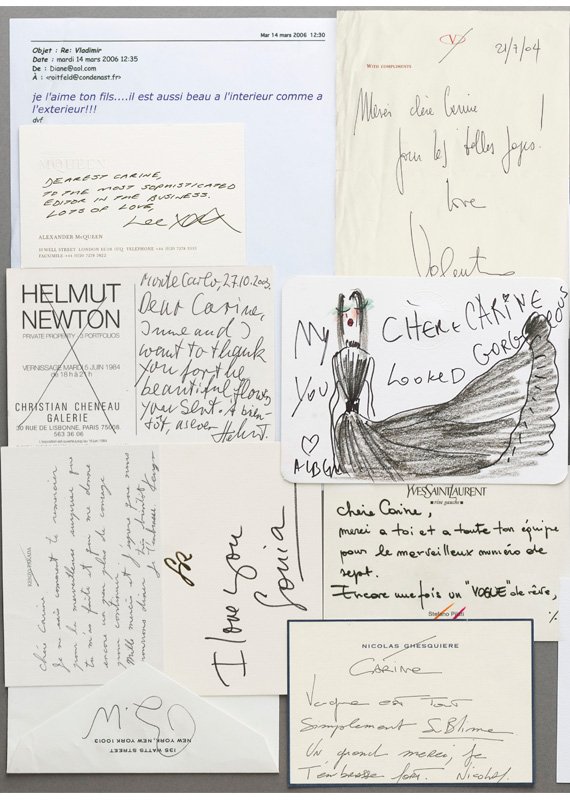 Mar 14 mars 2006 12:30
Objet : Re: Vladimir
Date : mardi 14 mars 2006 12:35
De : Diane@aol.com
À : <roitfeld@condenast.fr>
je l'aime ton fils....il est aussi beau a l'interieur comme a
l'exterieur!!!
dvf
V
21/7/04
WITH COMPLIMENTS
Merci chère Carine
pour les belles pages!
love
Valentino
McQUEEN
DEAREST CARINE,
TO THE MOST SOPHISTICATED
EDITOR IN THE BUSINESS.
LOTS OF LOVE,
Lee XXX
ALEXANDER MCQUEEN
FACSIMILE +44 (0)20 7278 3922
HELMUT
NEWTON
PRIVATE PROPERTY 3 PORTFOLIOS
VERNISSAGE MARDI 5 JUIN 1984
de 18 h à 21 h
CHRISTIAN CHENEAU
GALERIE
30 RUE DE LISBONNE, PARIS 75008.
563 36 06
Monte Carlo, 27.10.2003
Dear Carine,
June and I
want to thank
you for the
beautiful flowers
you sent. A bien-
tôt, as ever Helmut.
MY CHÈRE CARINE
YOU LOOKED GORGEOUS
♡
ALBER
Chère Carine
Je ne sais comment te remercier
pour la merveilleuse surprise que
tu m'as faite et qui me donne
encore un peu plus de courage
pour continuer.
Mille mercis et j'espère que nous
I love you
Sonia
YVES SAINT LAURENT
rive gauche
chère Carine,
merci a toi et a toute ton équipe
pour le merveilleux numéro de
sept.
Encore une fois un "VOGUE" de rêve,
Stefano Pilati
NICOLAS GHESQUIERE
CARINE
Vogue est tout
simplement SUBlime
Un grand merci, je
t'embrasse fort. Nicolas.
135 WATTS STREET
NEW YORK, NEW YORK 10013